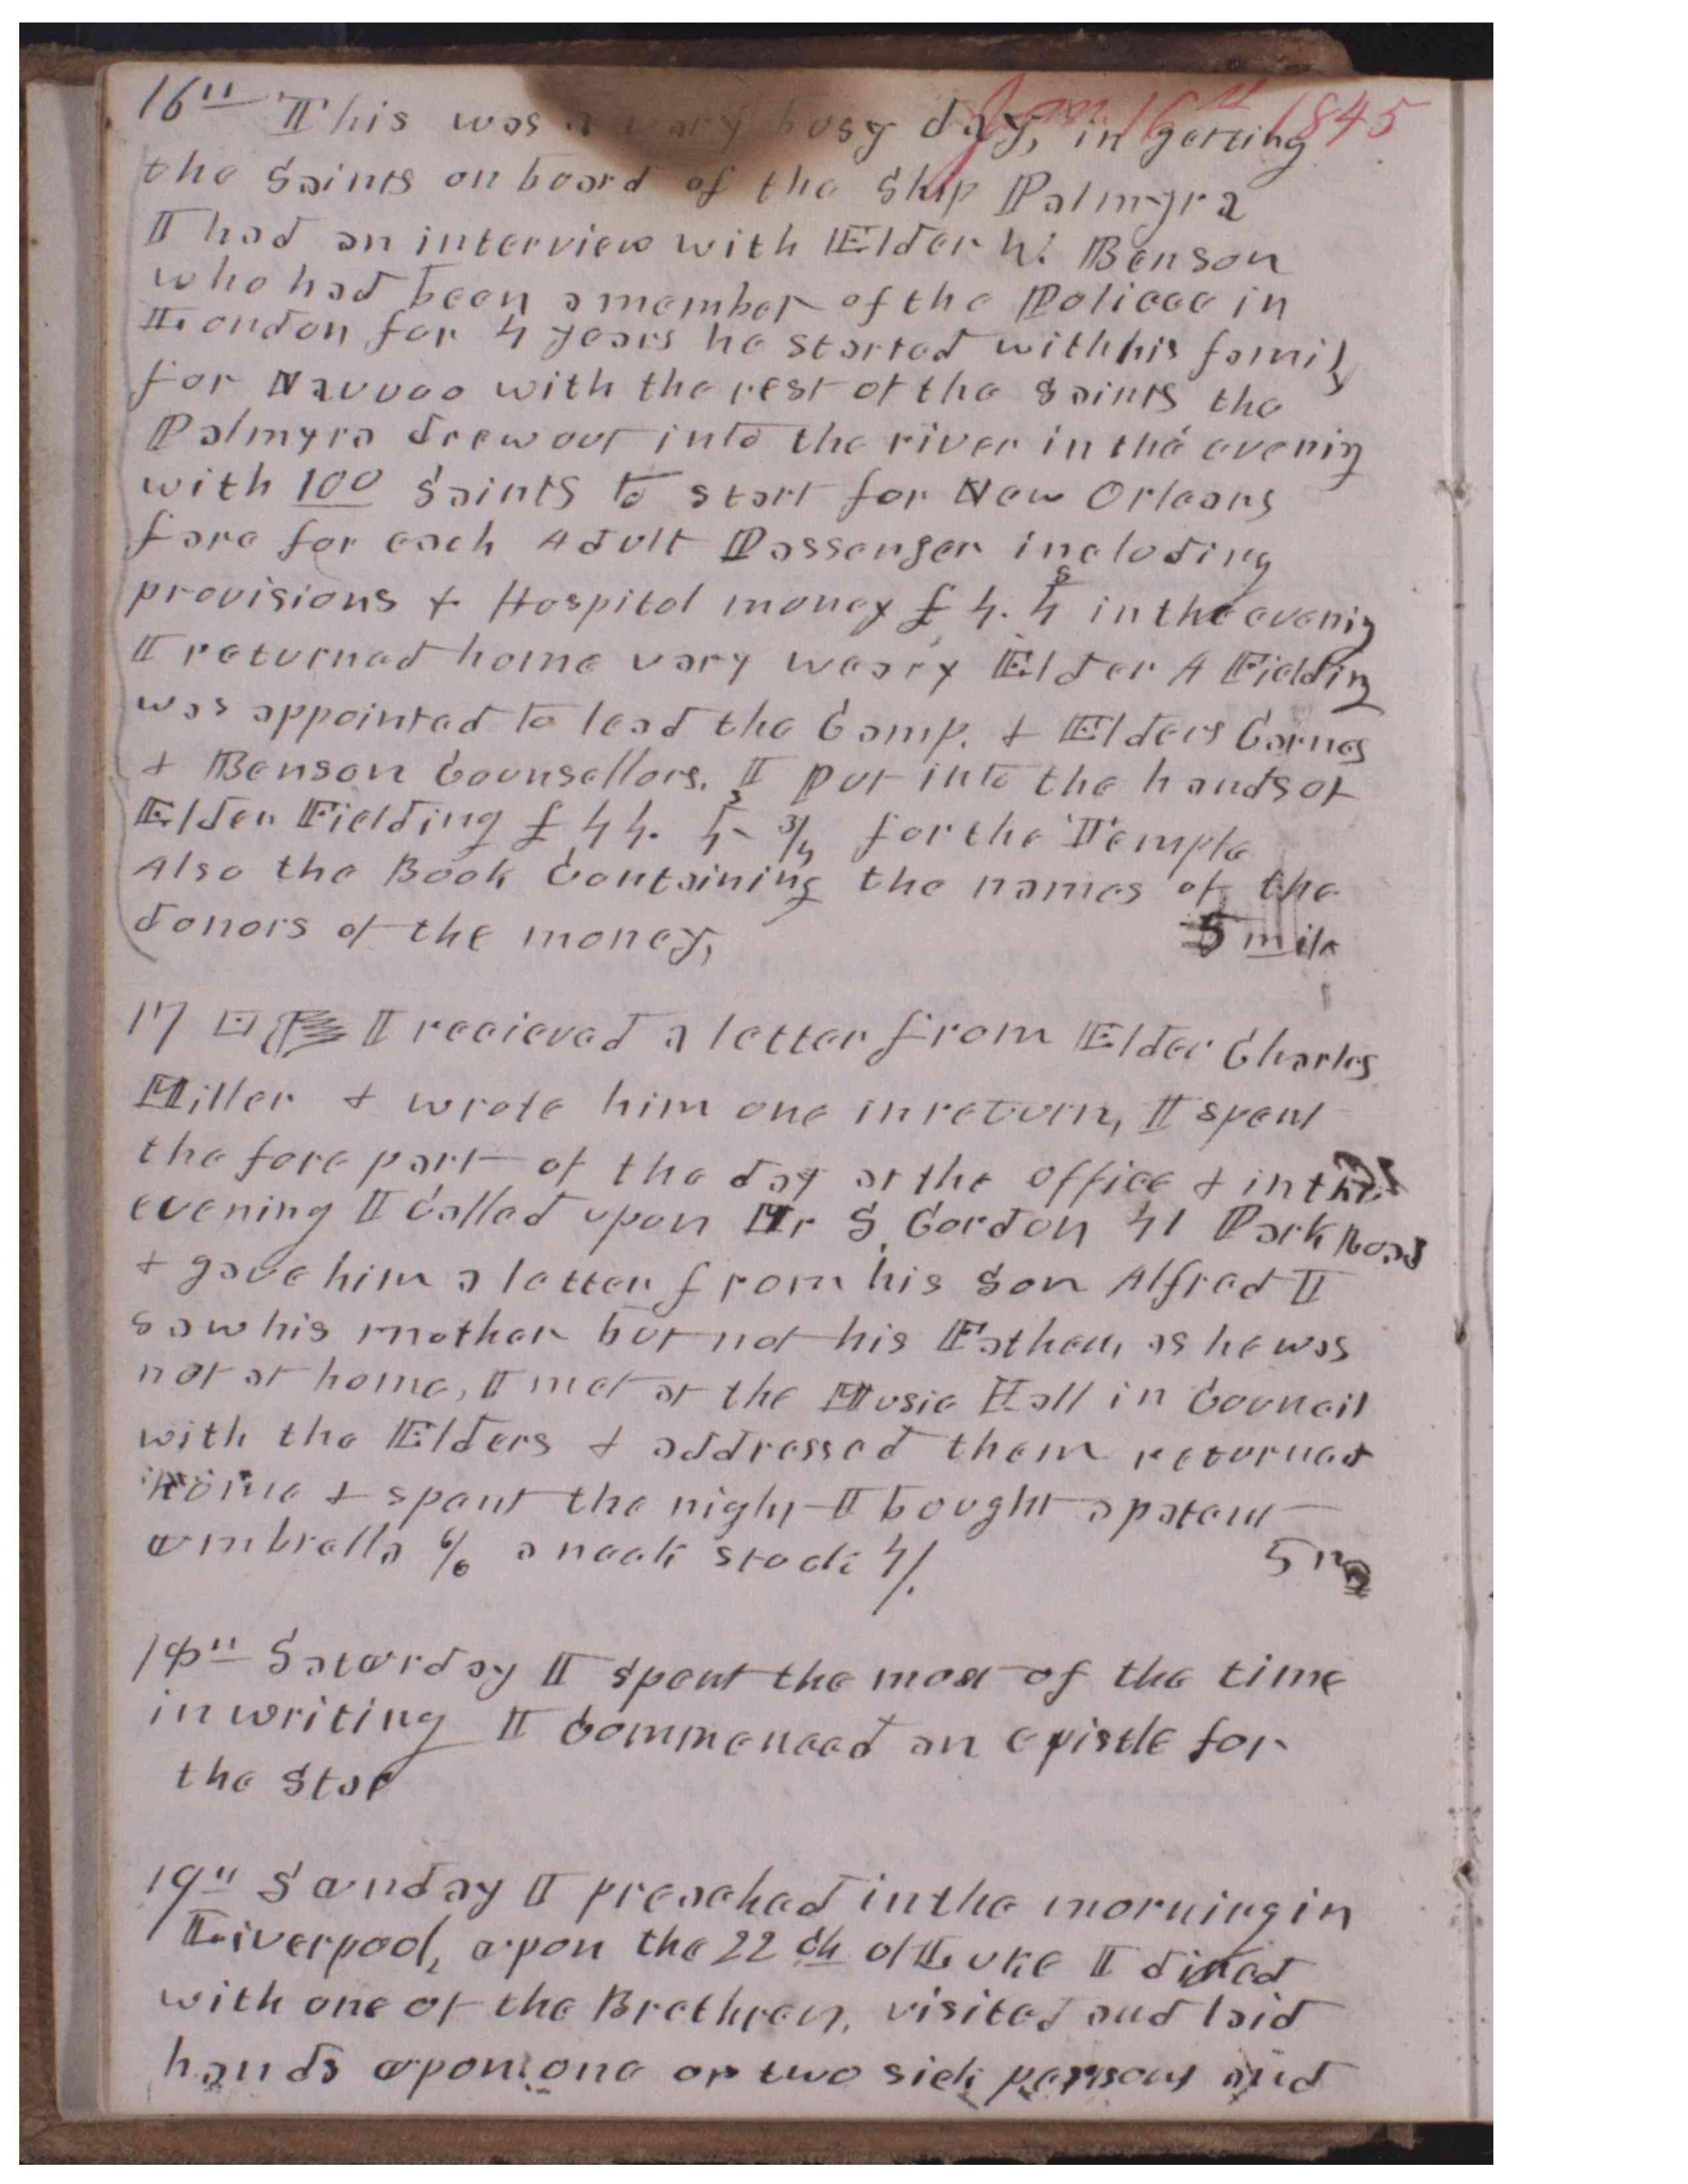 Jan 16th 1845
16th This was a very busy day, in getting
the Saints on board of the Ship Palmyra
I had an interview with Elder W. Benson
who had been a member of the Policee in
London for 4 years he started with his family
for Nauvoo with the rest of the Saints the
Palmyra drew out into the river in the evenig
with 100 Saints to start for New Orleans
fare for each Adult Passenger including
provisions & Hospital money £4.4s in the evenig
I returned home vary weary Elder A Fielding
was appointed to lead the Comp. & Elders Carnes
& Benson Counsellors. I put into the hands of
Elder Fielding £44. 5s 3/4 for the Temple
Also the Book Containing the names of the
donors of the money, 5 mile
17 I recieved a letter from Elder Charles
Miller & wrote him one in return, I spent
the fore part of the day at the office & in the
evening I called upon Mr S. Gordon 41 Park Road
& gave him a letter from his Son Alfred I
saw his mother but not his Father, as he was
not at home, I met at the Music Hall in Council
with the Elders & addressed them returned
home & spent the night I bought a patent
umbrella 6/6 a neck stock 4/. 5 m
18th Saturday I spent the most of the time
in writing I Commenced an epistle for
the Star
19th Sunday I preached in the morning in
Liverpool, upon the 22 ch of Luke I dined
with one of the Brethren, visited and laid
hands upon one or two sick persons and